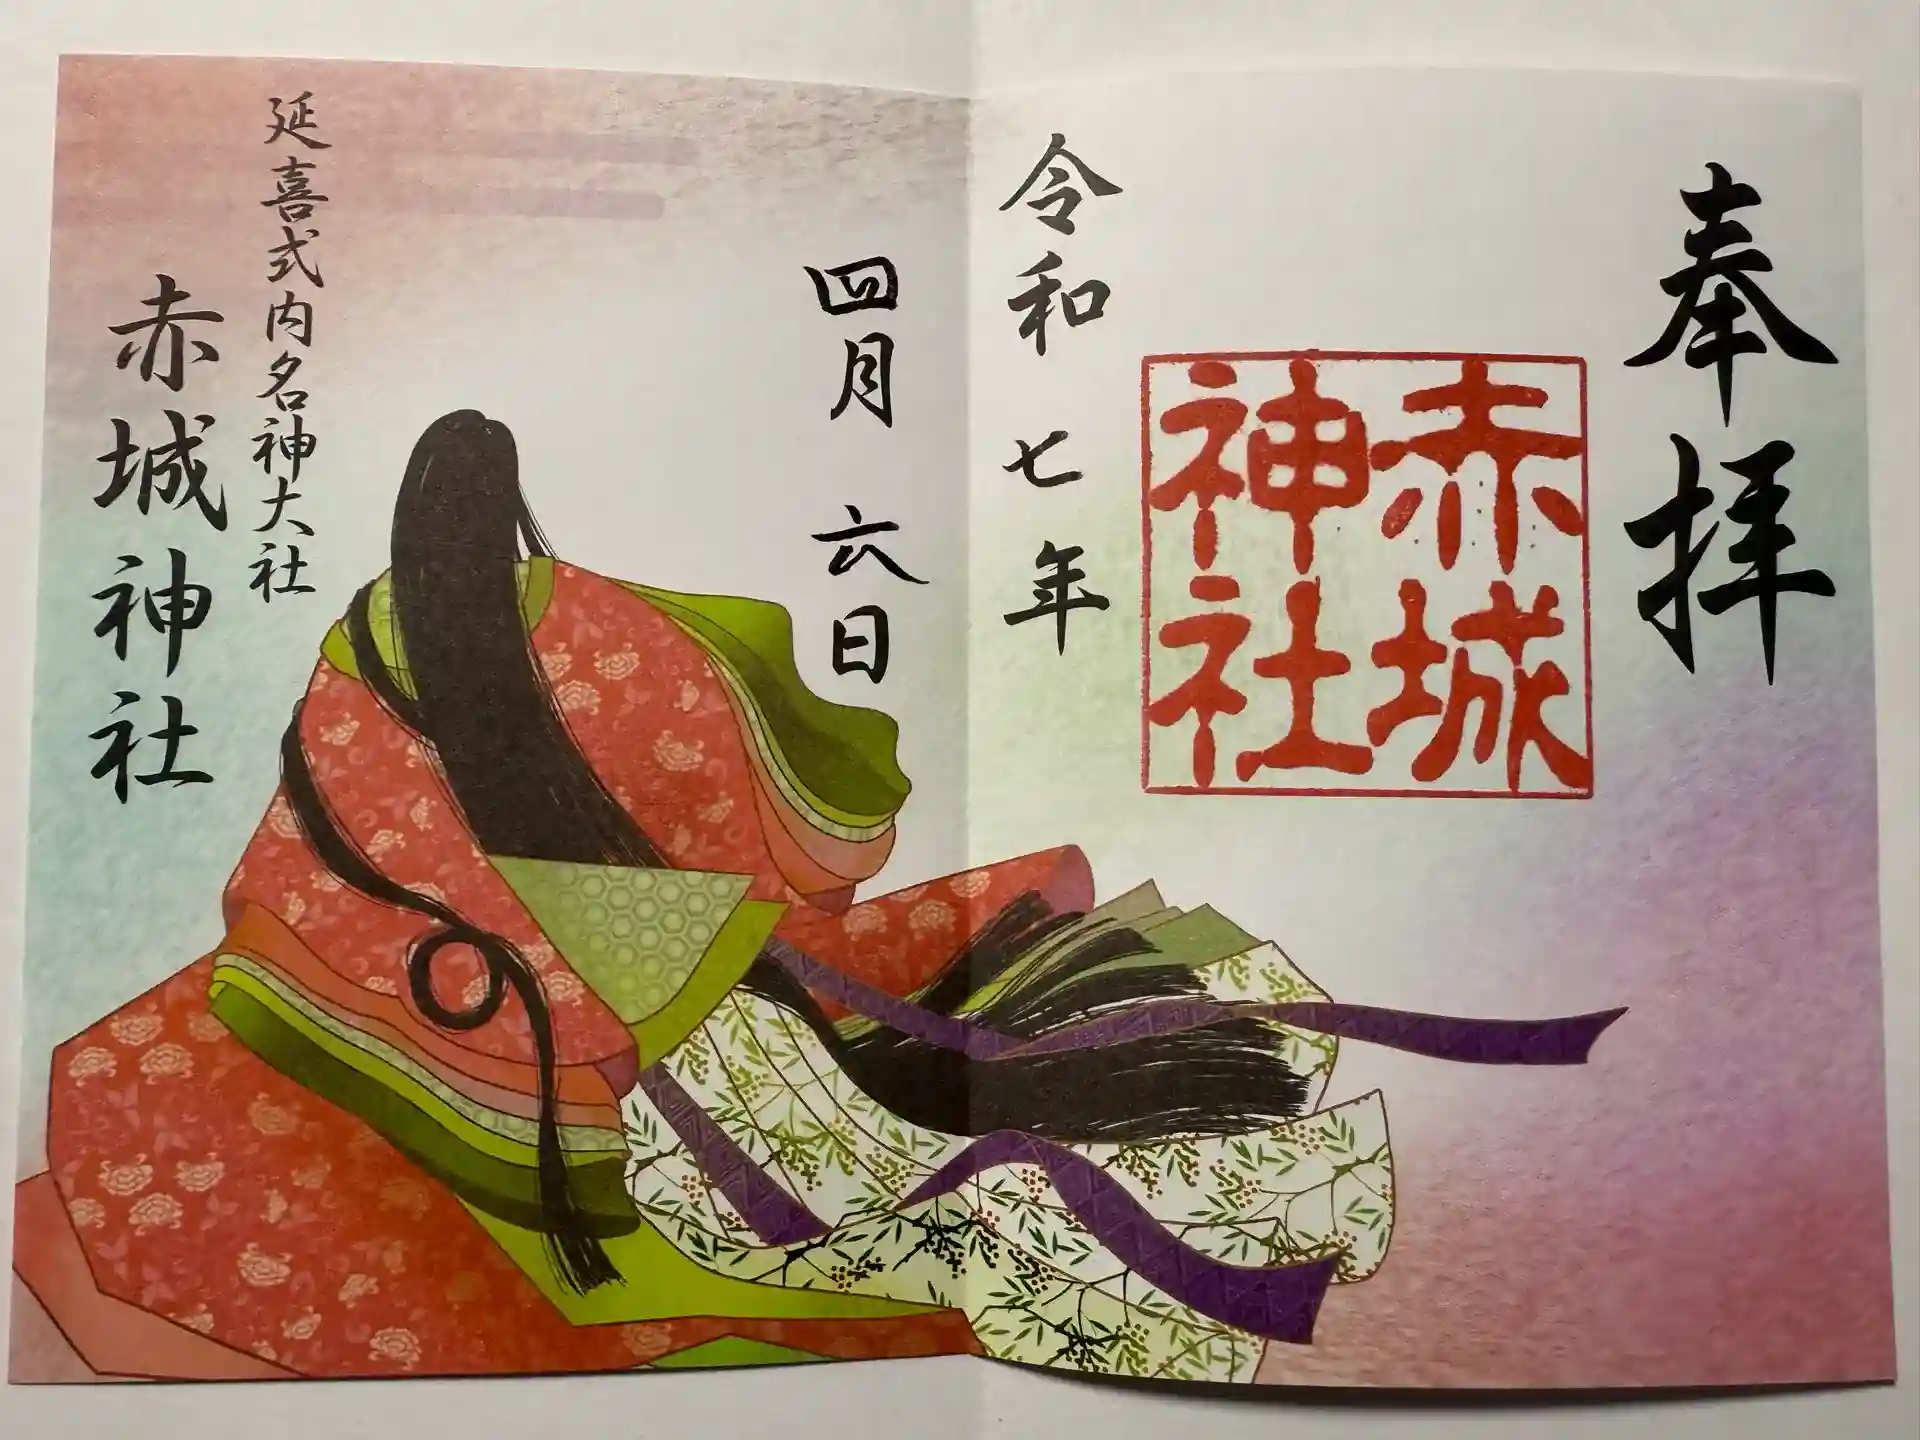 奉拝
赤城
神社
令和七年
四月六日
延喜式内名神大社
赤城神社